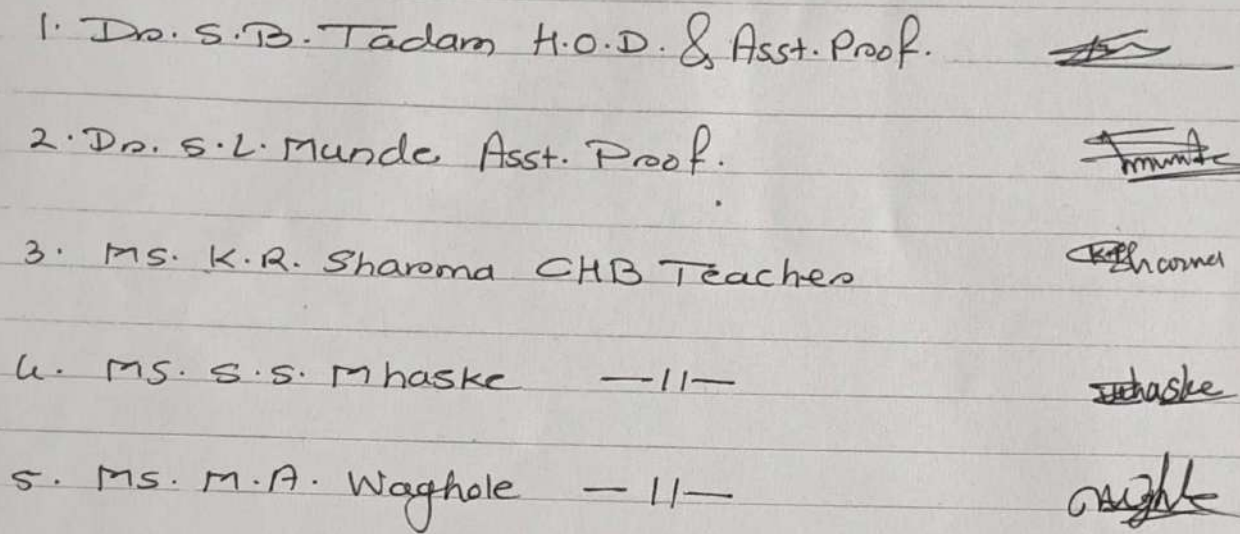 1. Dr. S.B. Tadam H.O.D. & Asst. Prof.
2. Dr. S.L. Munde Asst. Prof.
3. Ms. K.R. Sharma CHB Teacher
4. Ms. S.S. Mhaske —11—
5. Ms. M.A. Waghole —11—